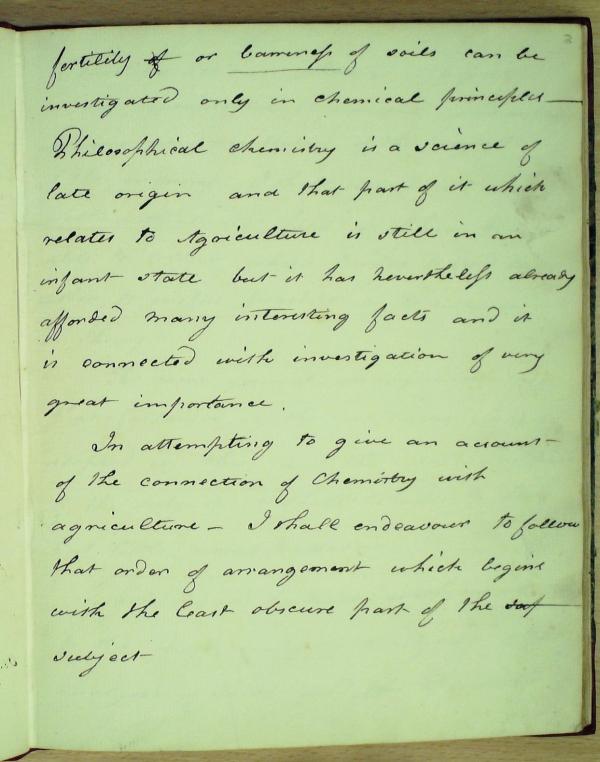 3
fertility of or barrenness of soils can be
investigated only in chemical principles —
Philosophical chemistry is a science of
late origin and that part of it which
relates to Agriculture is still in an
infant state but it has nevertheless already
afforded many interesting facts and it
is connected with investigation of very
great importance.
In attempting to give an account
of the connection of Chemistry with
agriculture — I shall endeavour to follow
that order of arrangement which begins
with the least obscure part of the
subject